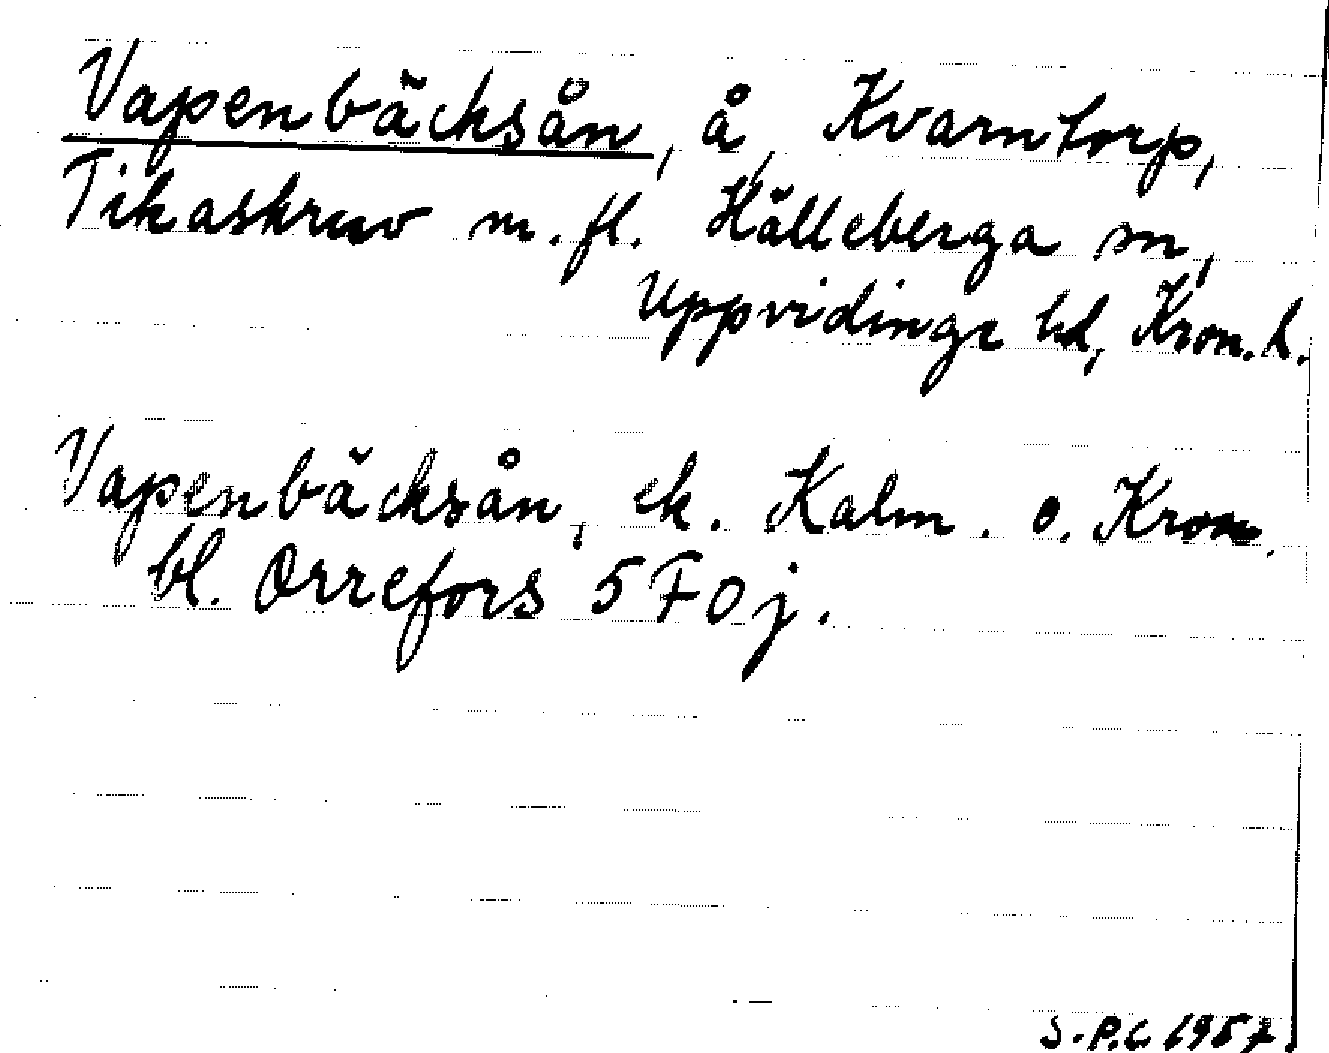 Vapenbäcksån, å, Kvarntorp,
Tikaskruv m.fl. Hälleberga sn,
Uppvidinge hd, Kron.l.
Vapenbäcksån, ek. Kalm. o. Kron.
bl. Orrefors 5F0j.
S.P.C 1957